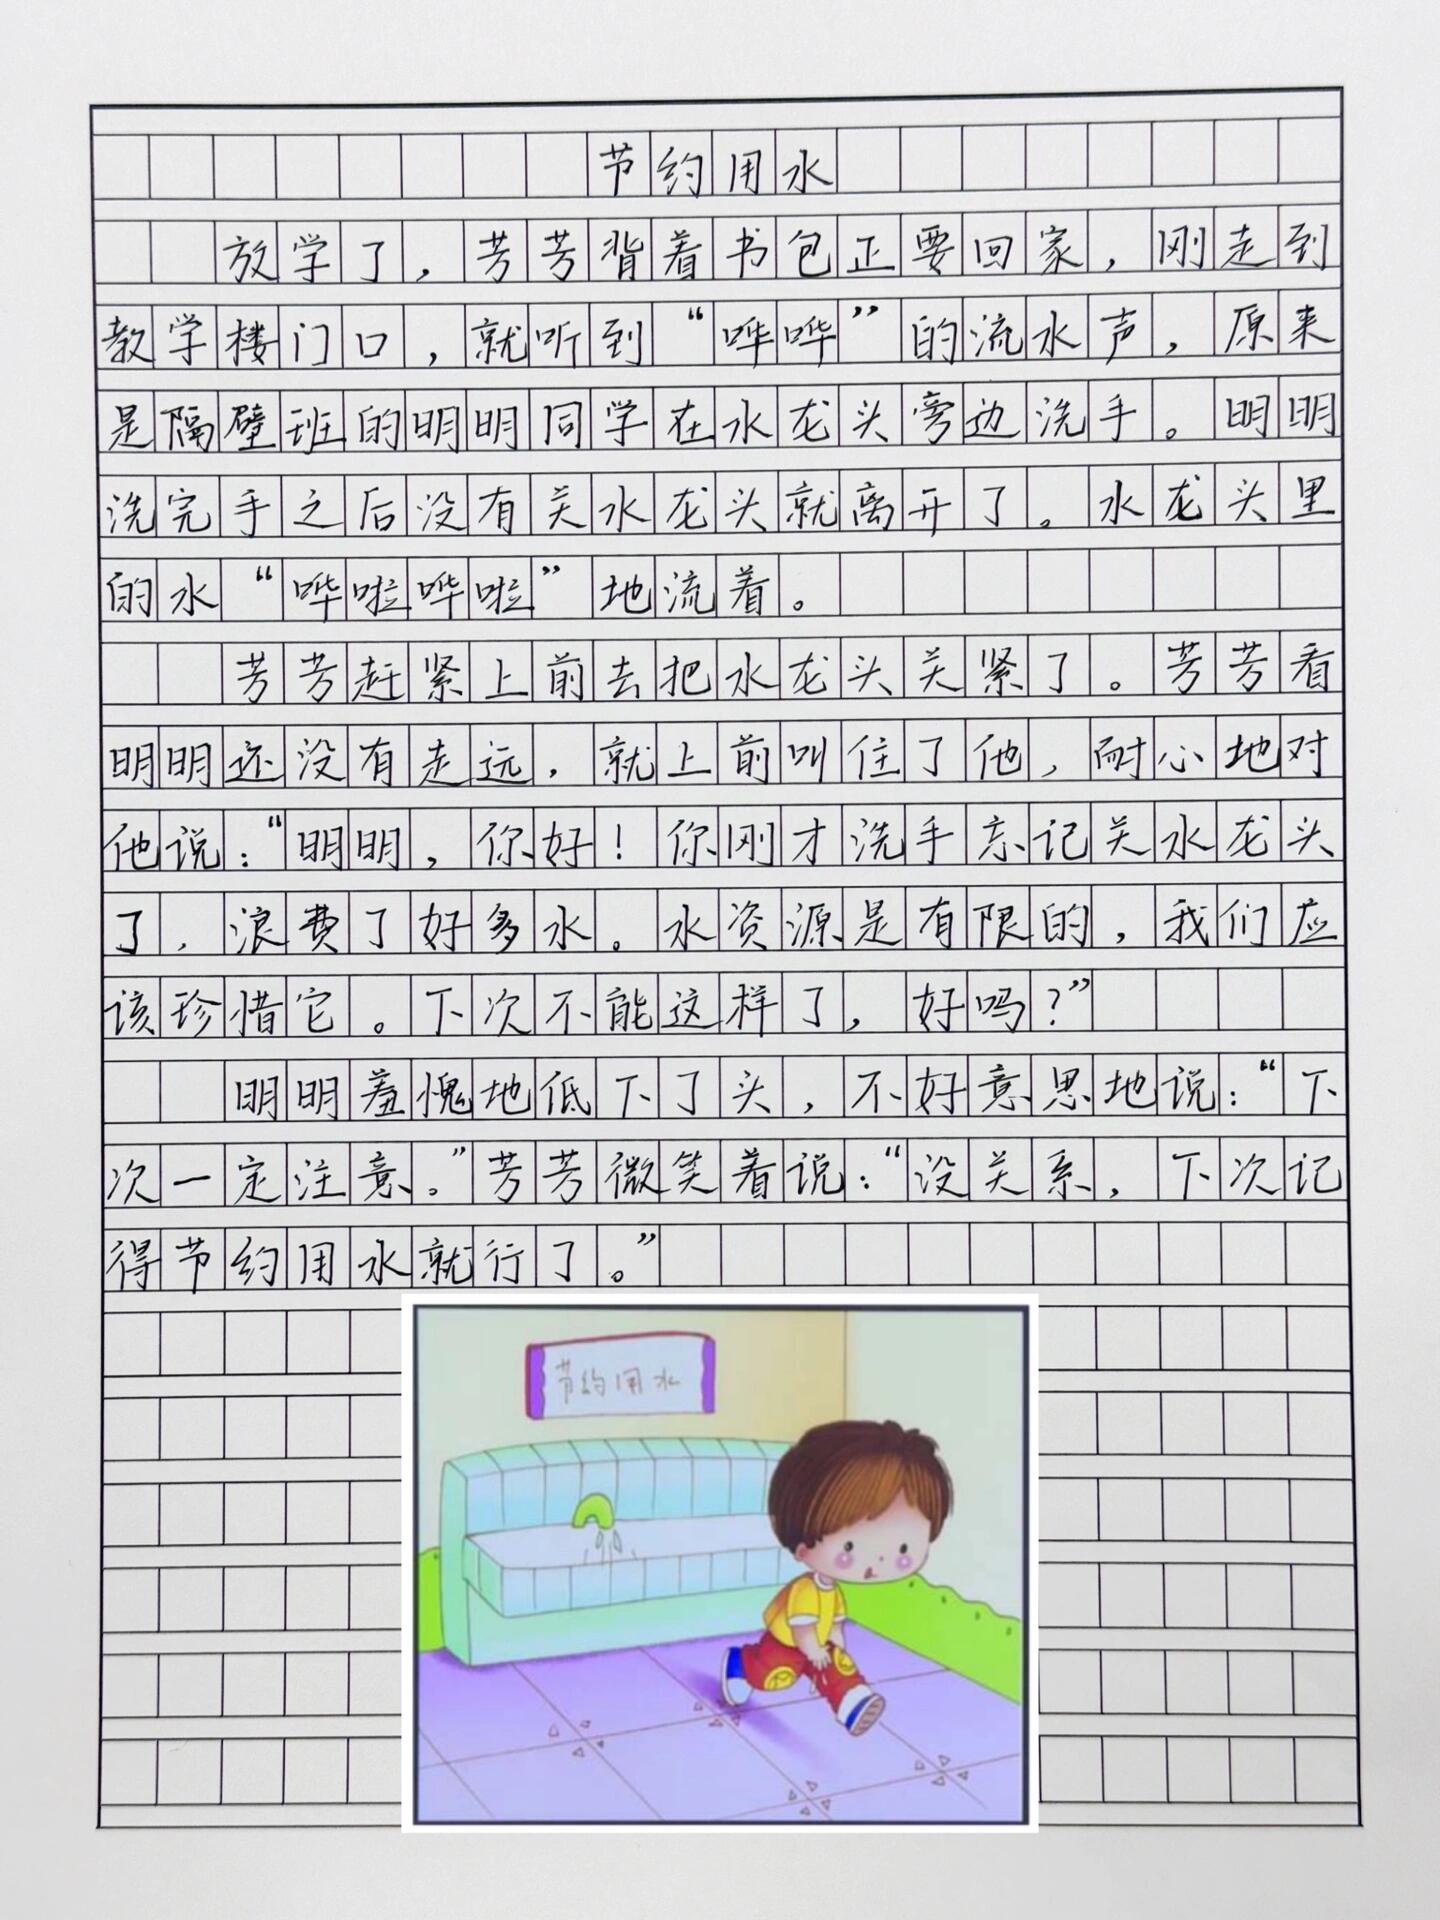 节约用水
放学了，芳芳背着书包正要回家，刚走到
教学楼门口，就听到“哗哗”的流水声，原来
是隔壁班的明明同学在水龙头旁边洗手。明明
洗完手之后没有关水龙头就离开了。水龙头里
的水“哗啦哗啦”地流着。
芳芳赶紧上前去把水龙头关紧了。芳芳看
明明还没有走远，就上前叫住了他，耐心地对
他说：“明明，你好！你刚才洗手忘记关水龙头
了，浪费了好多水。水资源是有限的，我们应
该珍惜它。下次不能这样了，好吗？”
明明羞愧地低下了头，不好意思地说：“下
次一定注意。”芳芳微笑着说：“没关系，下次记
得节约用水就行了。”
节约用水